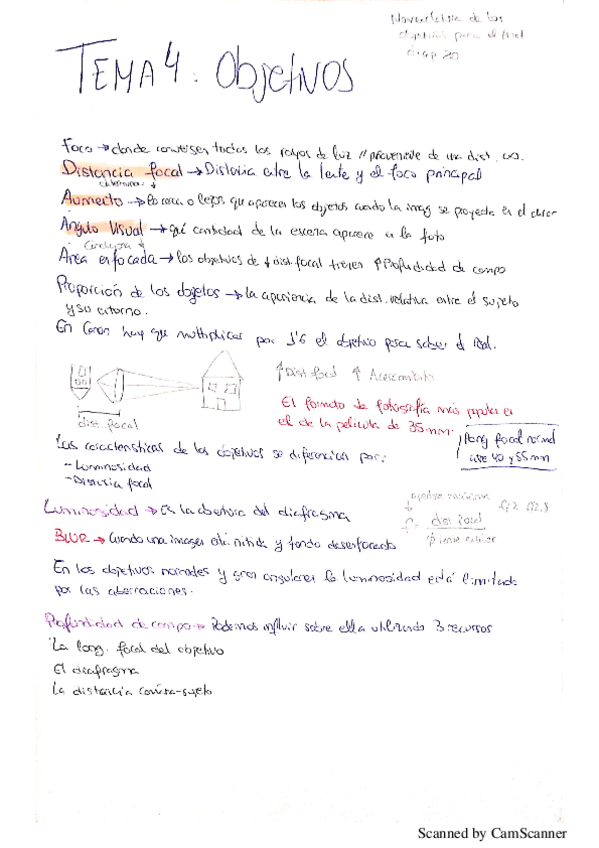 Nomenclatura de los
objetivos para el final
diap 20
TEMA 4: Objetivos
Foco → donde convergen todos los rayos de luz // proveniente de una dist. ∞.
Distancia focal → Distancia entre la lente y el foco principal
determina ↓
Aumento → lo cerca o lejos que aparecen los objetos cuando la imag se proyecta en el
Angulo Visual → qué cantidad de la escena aparece en la foto
↓
Area enfocada → los objetivos de ↓ dist. focal tienen ↑ Profundidad de campo
Proporción de los objetos → la apariencia de la dist. relativa entre el sujeto
y su entorno.
En Canon hay que multiplicar por 1'6 el objetivo para saber el real.
↑ Dist focal ↑ Acercamiento
El formato de fotografía más popular es
el de la película de 35 mm.
dist. focal
long focal normal
entre 40 y 55 mm
Las características de los objetivos se diferencian por:
- Luminosidad
- Distancia focal
Luminosidad → Es la abertura del diafragma
apertura
dist focal
f: 2 f2.8
BLUR → Cuando una imagen está nítida y fondo desenfocado
En los objetivos normales y gran angulares la luminosidad está limitada
por las aberraciones.
Profundidad de campo → Podemos influir sobre ella utilizando 3 recursos
La long. focal del objetivo
El diafragma
La distancia cámara-sujeto
Scanned by CamScanner